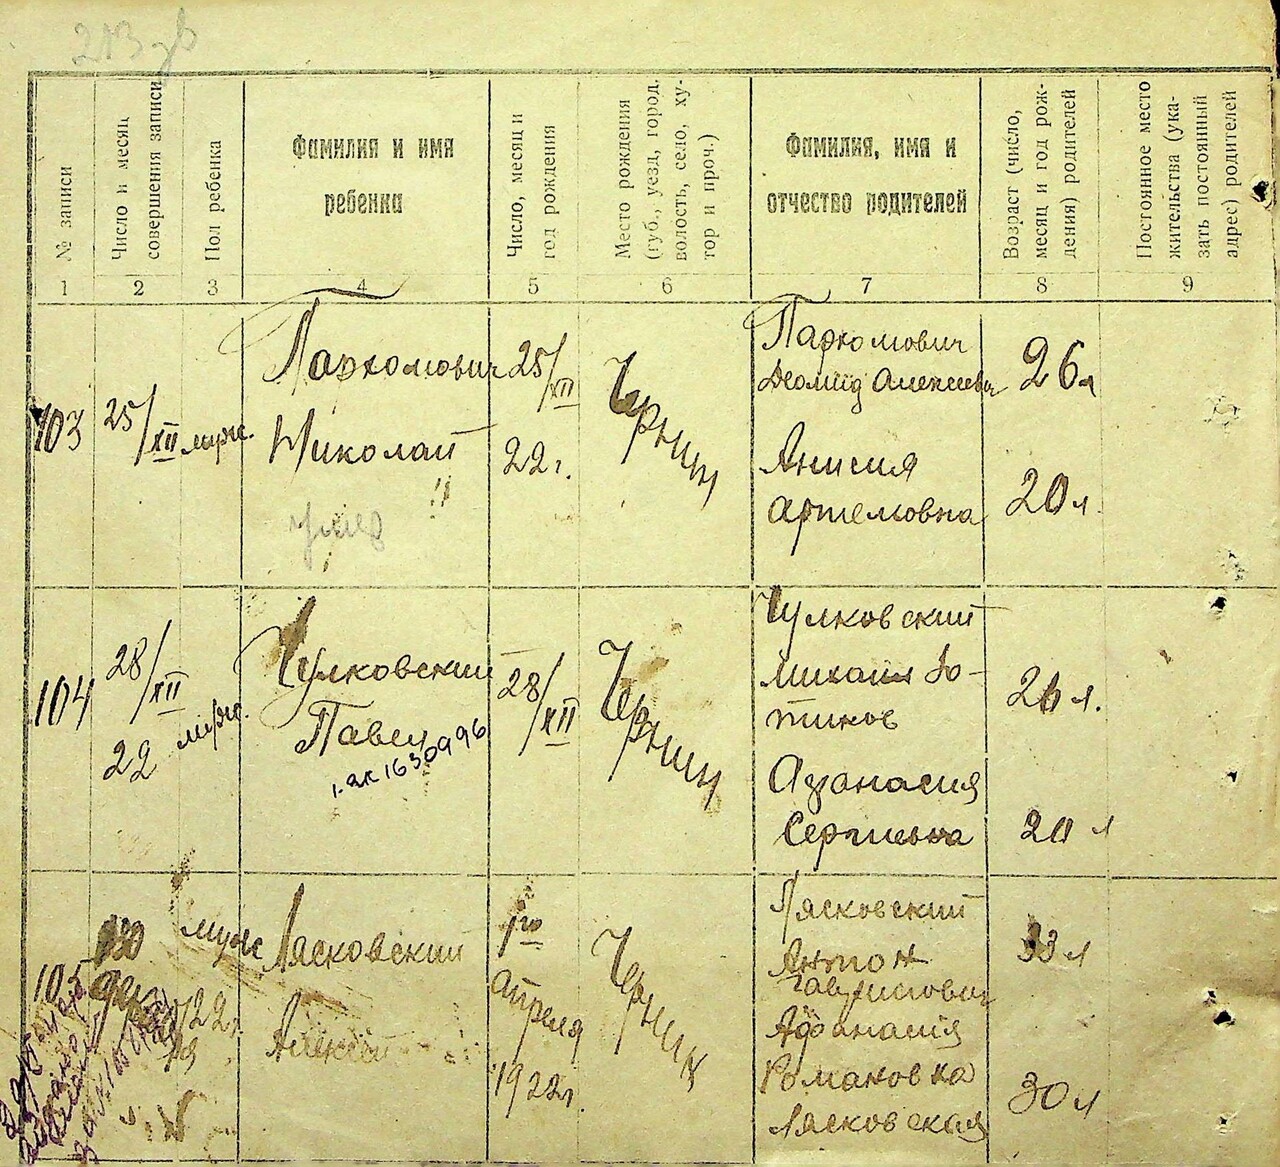 213
№ записи
Число и месяц
совершения записи
Пол ребенка
Фамилия и имя
ребенка
Число, месяц и
год рождения
Место рождения
(губ., уезд, город,
волость, село, ху-
тор и проч.)
Фамилия, имя и
отчество родителей
Возраст (число,
месяц и год рож-
дения) родителей
Постоянное место
жительства (ука-
зать постоянный
адрес) родителей
1 2 3 4 5 6 7 8 9
103
25/XII
муж.
Пархомович
Николай
умер
25/XII
22 г.
Чернин
Пархомович
Деомид Алексеевич
Анисия
Артемовна
26 л
20 л.
104
28/XII
22
муж.
Чулковский
Павел
1630996
28/XII
Чернин
Чулковский
Михаил Зо-
тиков
Афанасия
Сергиевна
26 л.
20 л
105
22 г.
муж
Лясковский
Алексей
1го
апреля
1922 г.
Чернин
Лясковский
Антон
Гаврилович
Афанасія
Романовка
Лясковская
33 л
30 л